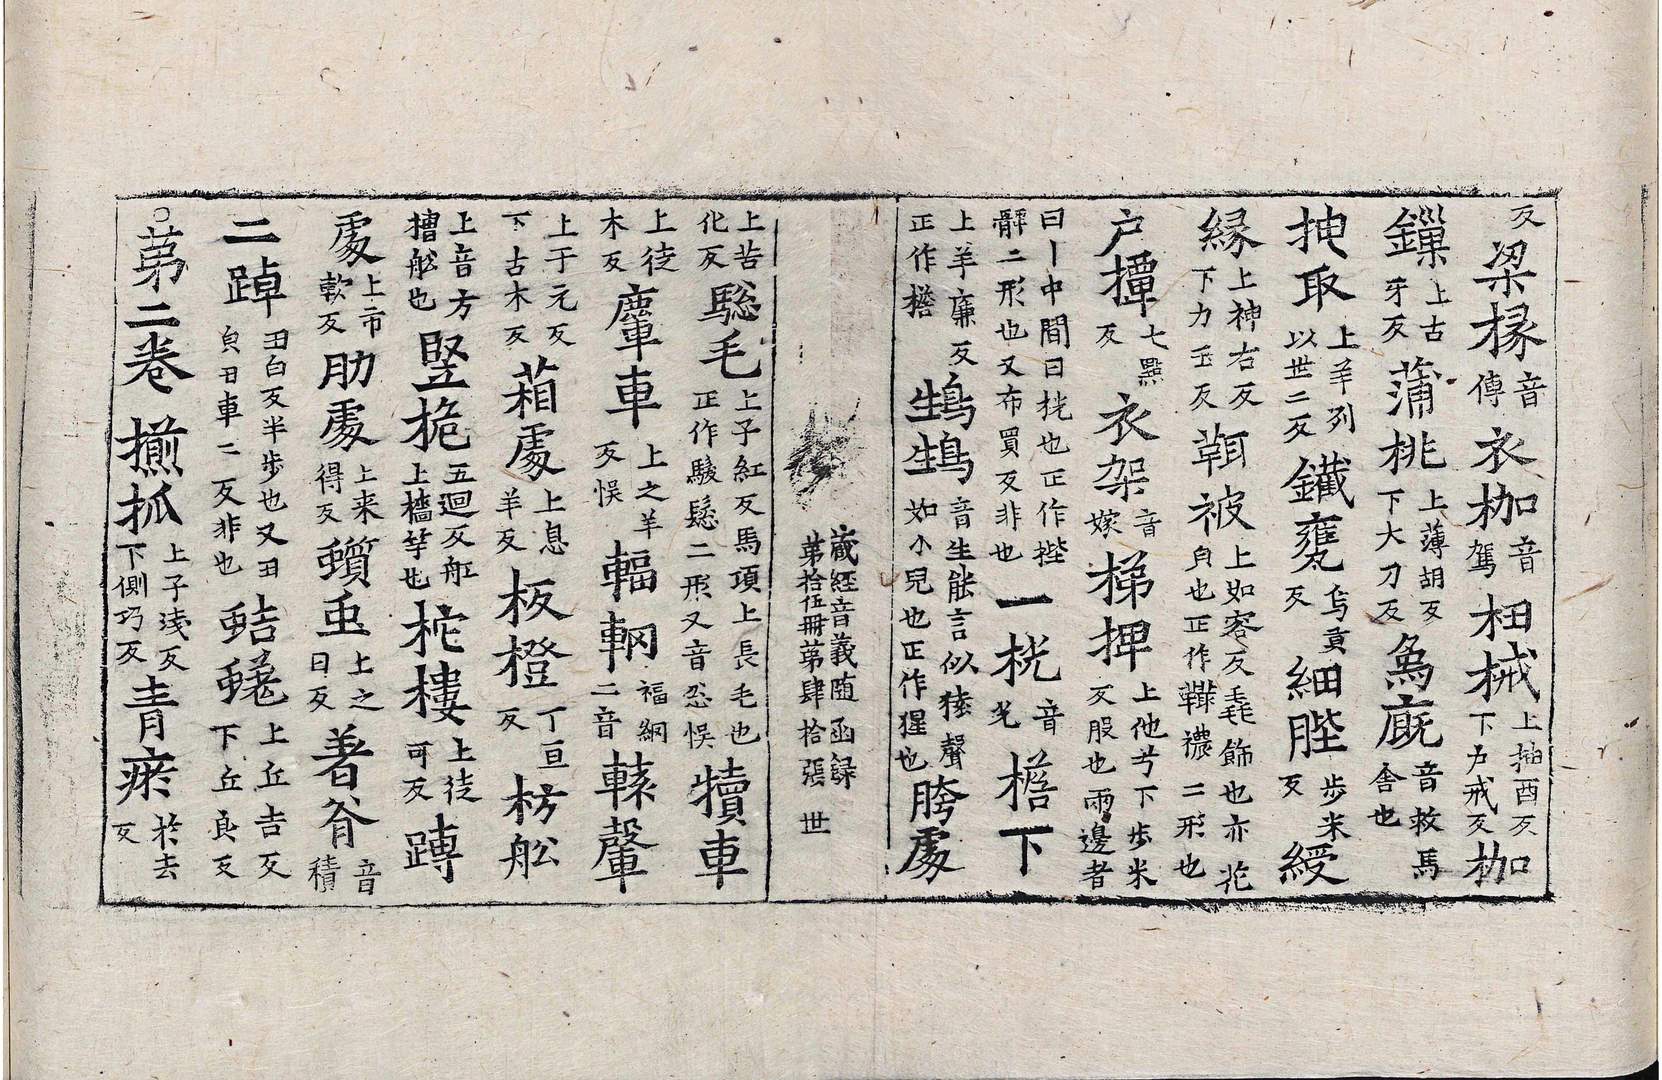 反梁椽音傳衣枷音駕杻械上抽酉反下户戒反枷
鏁上古牙反蒲桃上薄胡反下大刀反為廐音救馬舍也
抴取上羊列以世二反鐵甕烏貢反細陛步米反綬
縁上神右反下力玉反鞆被上如容反毳飾也亦花皃也正作鞾襛二形也
户撢七㸃反衣架音嫁梯捭上他兮下步米反股也兩邊者
曰丨中間曰桄也正作㮰髀二形也又布買反非也一桄音光檐下
上羊廉反正作櫩鴩鴩音生能言似猿聲如小兒也正作猩也胯處
藏經音義隨函録第拾伍冊第肆拾張 世
上苦化反騣毛上子紅反馬項上長毛也正作駿鬆二形又音忩悮犢車
上徒木反麞車上之羊反悮輻輞福網二音轅轝
上于元反下古木反葙處上息羊反板橙丁亘反枋舩
上音方艚舩也竪桅五迴反舡上檣竿也柁樓上徒可反蹲
處上市軟反肋處上来得反蠈䖝上之日反著脊音積
二踔丑白反半步也又丑皃丑車二反非也蛣蜣上丘吉反下丘良反
○苐二卷㨵抓上子浅反下側巧反青瘀於去反